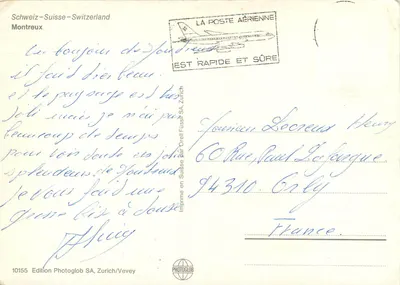 Schweiz-Suisse-Switzerland
Montreux
LA POSTE AÉRIENNE
EST RAPIDE ET SÛRE
un bonjour de Montreux
il fait très beau
et le paysage est très
joli mais je n'ai pas
beaucoup de temps
pour voir toute ces jolies
splendeurs de Montreux
je vous fait une
grosse bise à tous
Monsieur Lecreux Henry
60 Rue Paul Lafargue
94310. Orly
France.
Imprimé en Suisse par Orell Füssli SA, Zurich
10155 Edition Photoglob SA, Zurich/Vevey
PHOTOGLOB